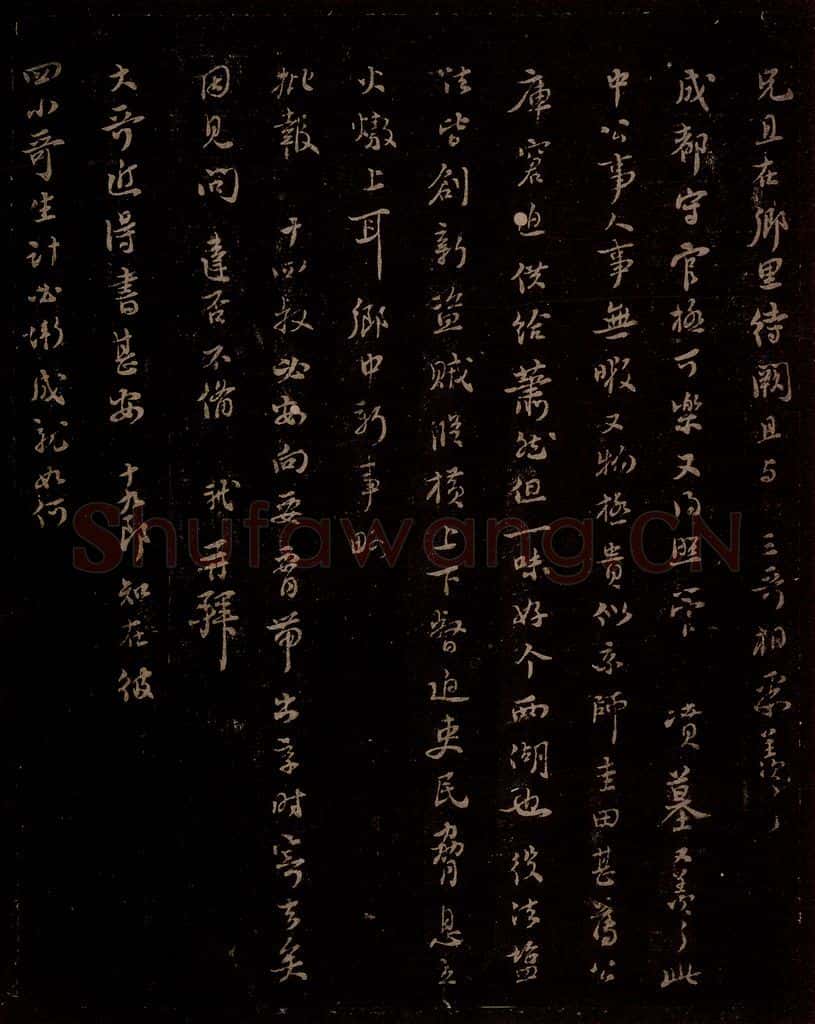 兄且在鄉里待闕且与 三哥相聚羨々
成都守官極可樂又得照管 墳墓又羨々此
中公事人事無暇又物極貴似京師圭田甚薄公
庫窘迫供給蕭然但一味好个西湖也役法塩
法皆創新盜賊縱橫上下督迫吏民脅息
火燉上耳鄉中新事略
批報 叔必安向要帶出京時寄去矣
因見問達否不備 軾再拜
大哥近得書甚安 十九郎知在彼
四小哥生計必漸成就如何
Shufawang.CN